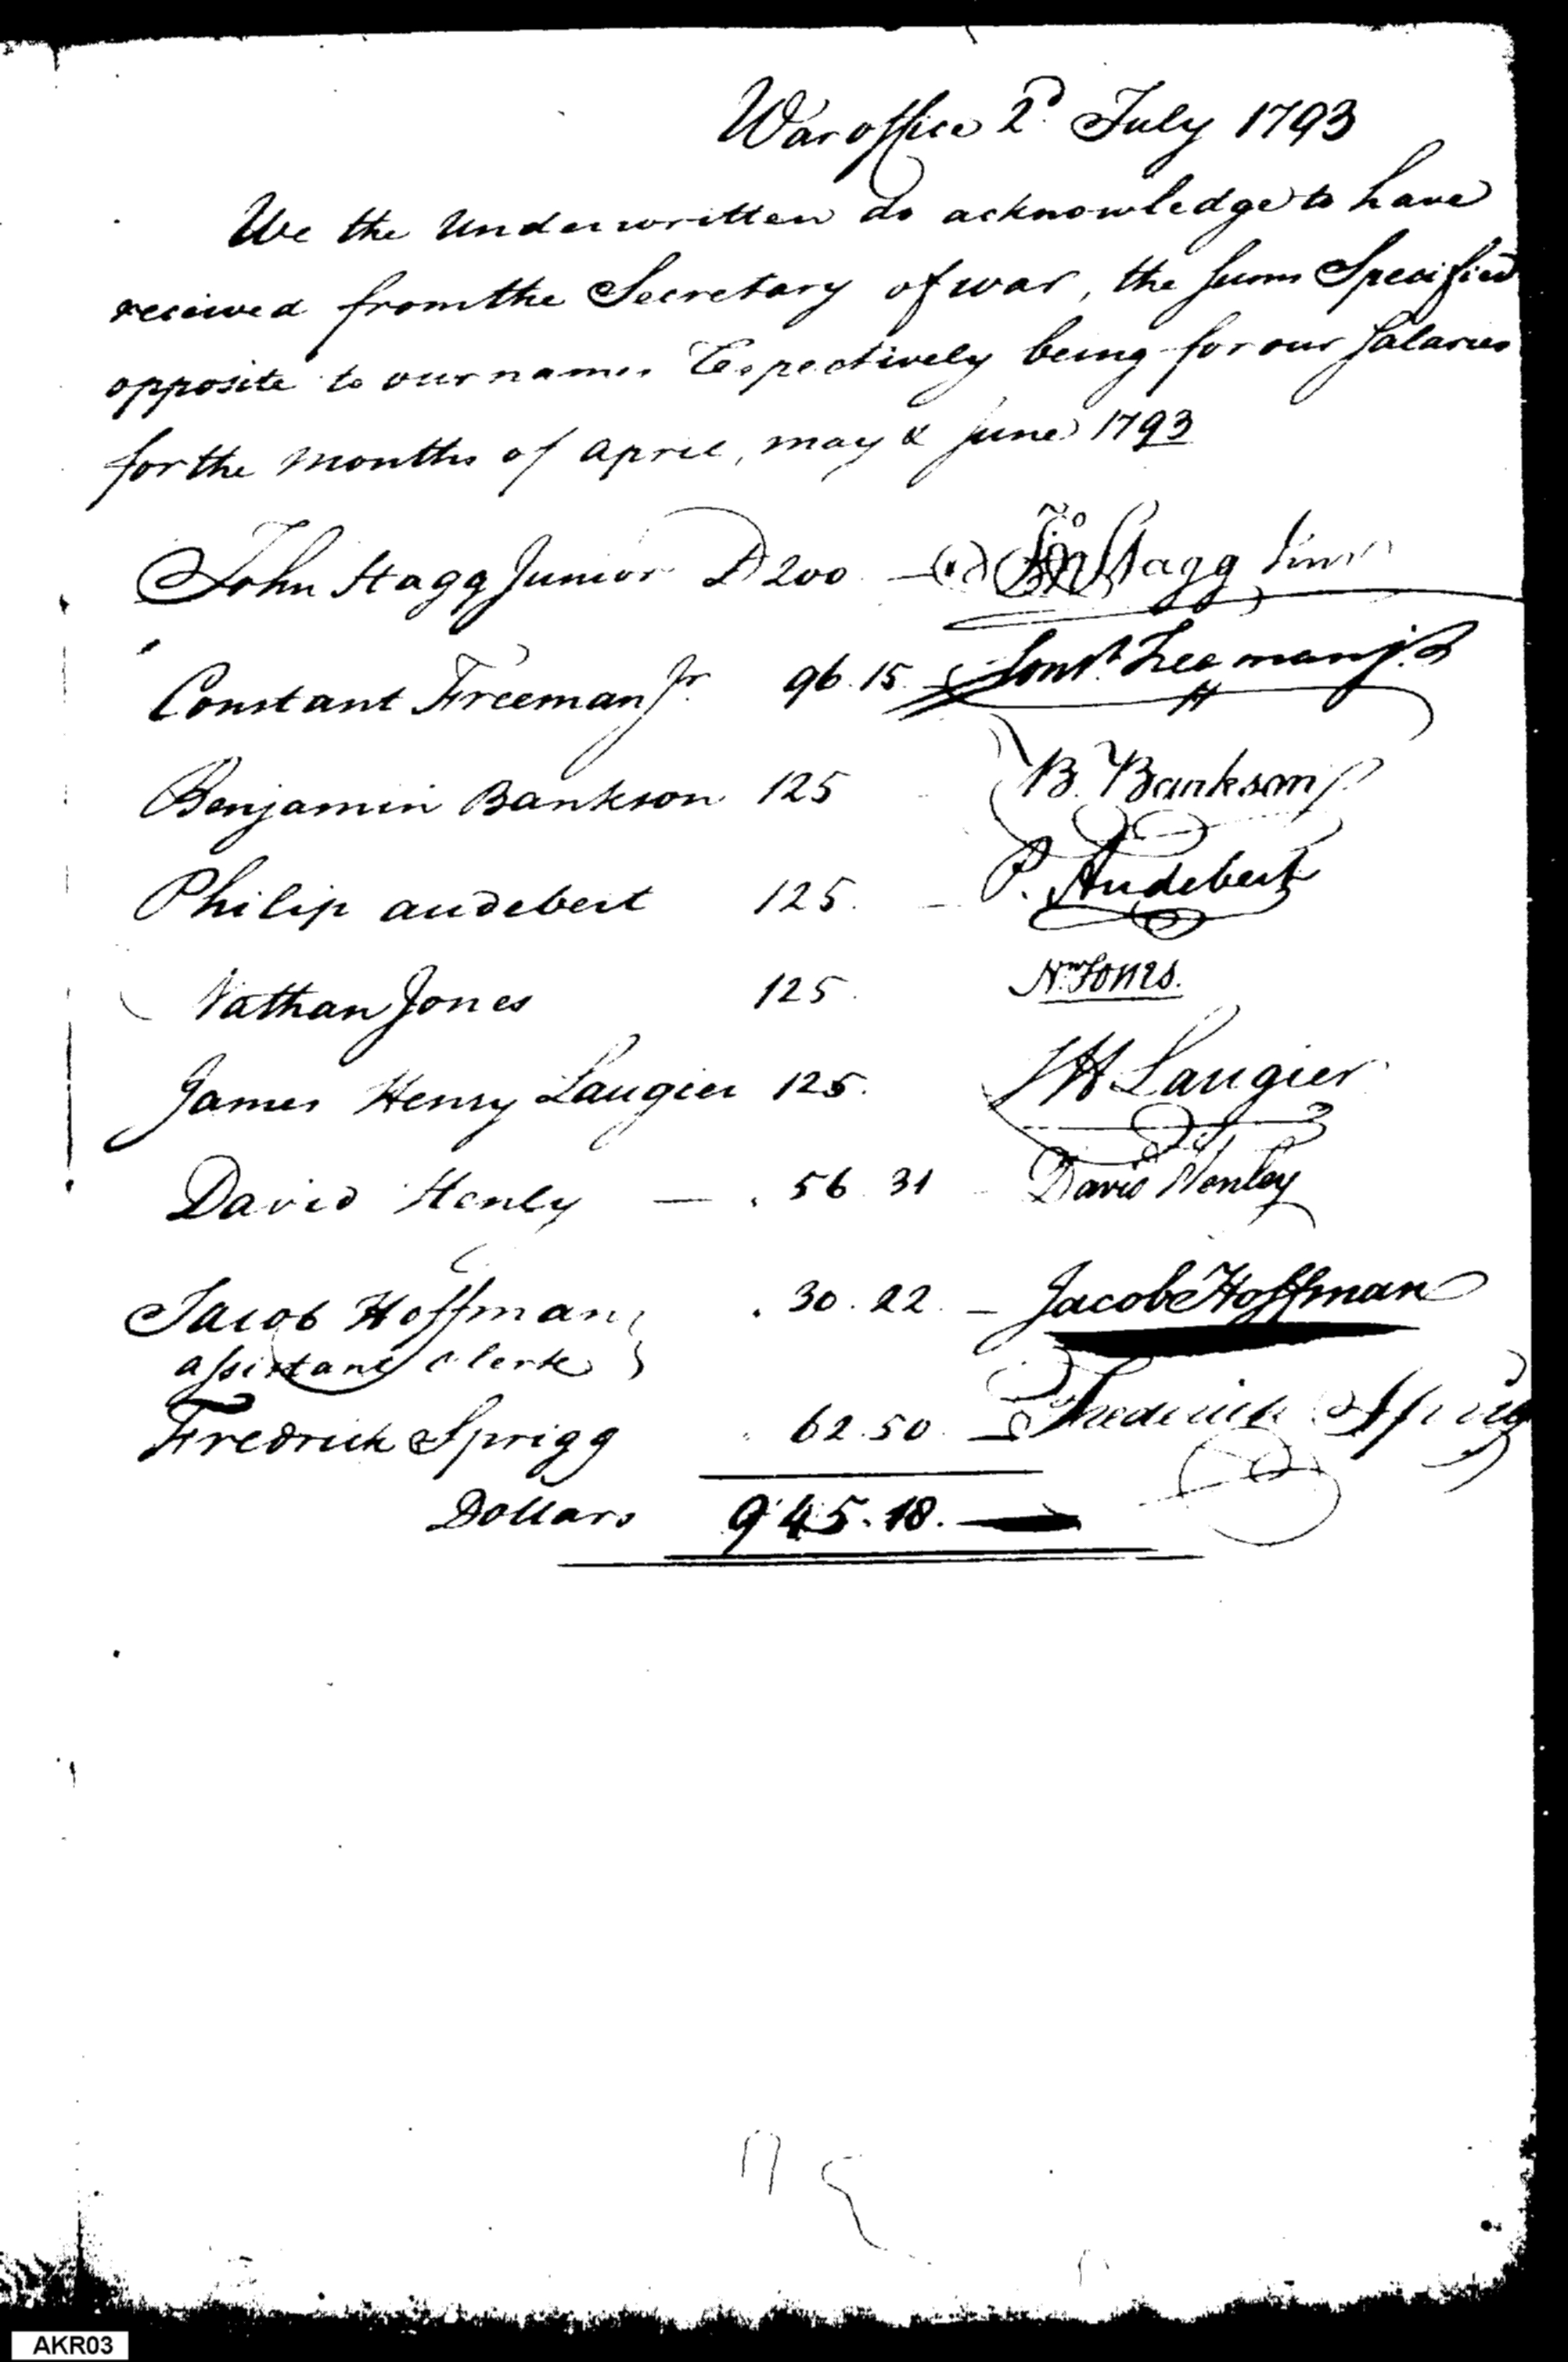 War office 2d July 1793
We the Underwritten do acknowledge to have
received from the Secretary of war, the sums Specified
opposite to our names Respectively being for our Salaries
for the months of april, may & June 1793
John Stagg Junior D 200 — Jno Stagg Junr
Constant Freeman Jr. 96.15 — Const. Freeman jr
Benjamin Bankson 125 B. Bankson
Philip audebert 125. — P. Audebert
Nathan Jones 125. Nn Jones.
James Henry Laugier 125. JH Laugier
David Henly — . 56 31 — David Henley
Jacob Hoffman . 30.22 — Jacob Hoffman
assistant clerk }
Fredrick Sprigg . 62.50. — Frederick Sprigg
Dollars 945.18. —
AKR03